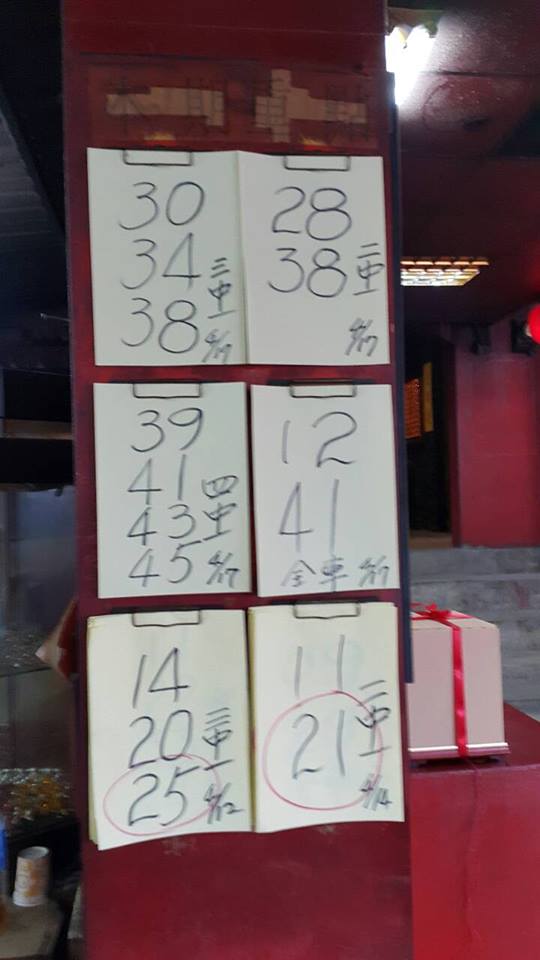 30
34
38
三中一
4/17
28
38
二中一
4/17
39
41
43
45
四中一
4/17
12
41
全車 4/17
14
20
25
三中一
4/12
11
21
二中一
4/14